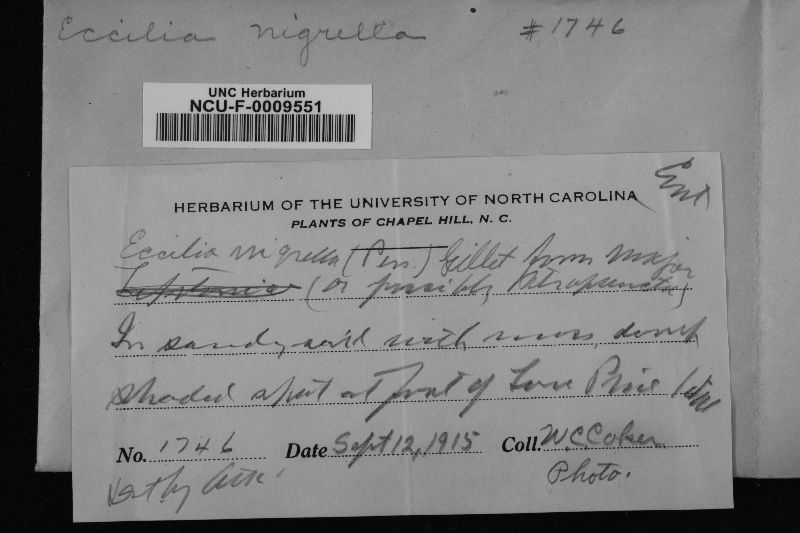 Eccilia nigrella #1746
UNC Herbarium
NCU-F-0009551
Ent
HERBARIUM OF THE UNIVERSITY OF NORTH CAROLINA
PLANTS OF CHAPEL HILL, N. C.
Eccilia nigrella (Pers.) Gillet form major
Leptonia (or possibly atropuncta)
In sandy soil with moss, damp
shaded spot at foot of Lone Pine Hill
No. 1746 Date Sept 12, 1915 Coll. W.C. Coker
Photo.